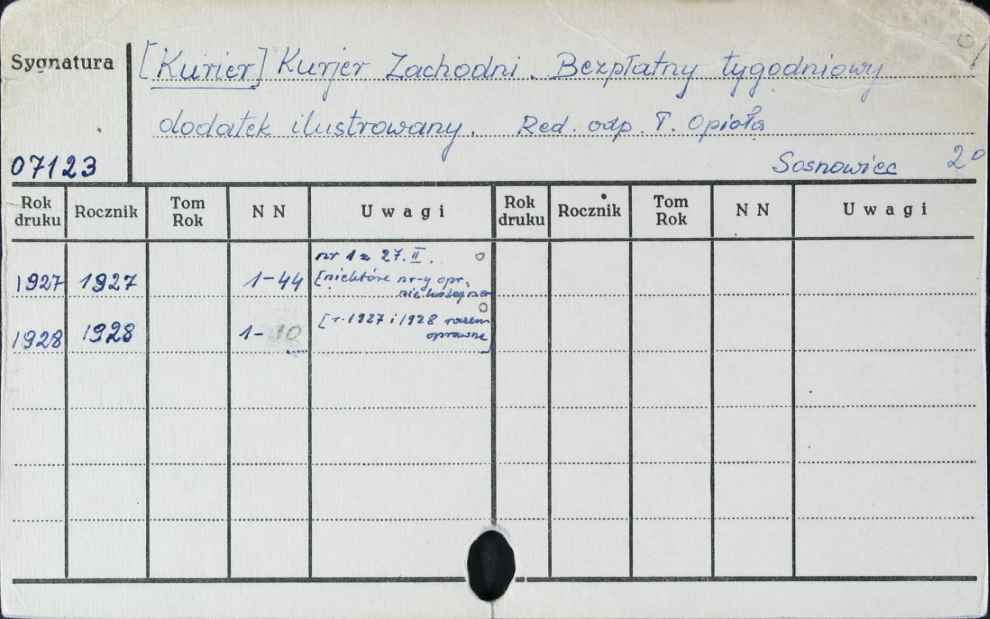 Sygnatura [Kurier] Kurjer Zachodni. Bezpłatny tygodniowy
dodatek ilustrowany. Red. odp. T. Opioła
07123 Sosnowiec 2°
Rok druku Rocznik Tom Rok N N Uwagi Rok druku Rocznik Tom Rok N N Uwagi
nr 1 z 27.II.
1927 1927 1-44 [niektóre nr-y opr.
nie kolejno
[r. 1927 i 1928 razem
1928 1928 1-10 oprawne]